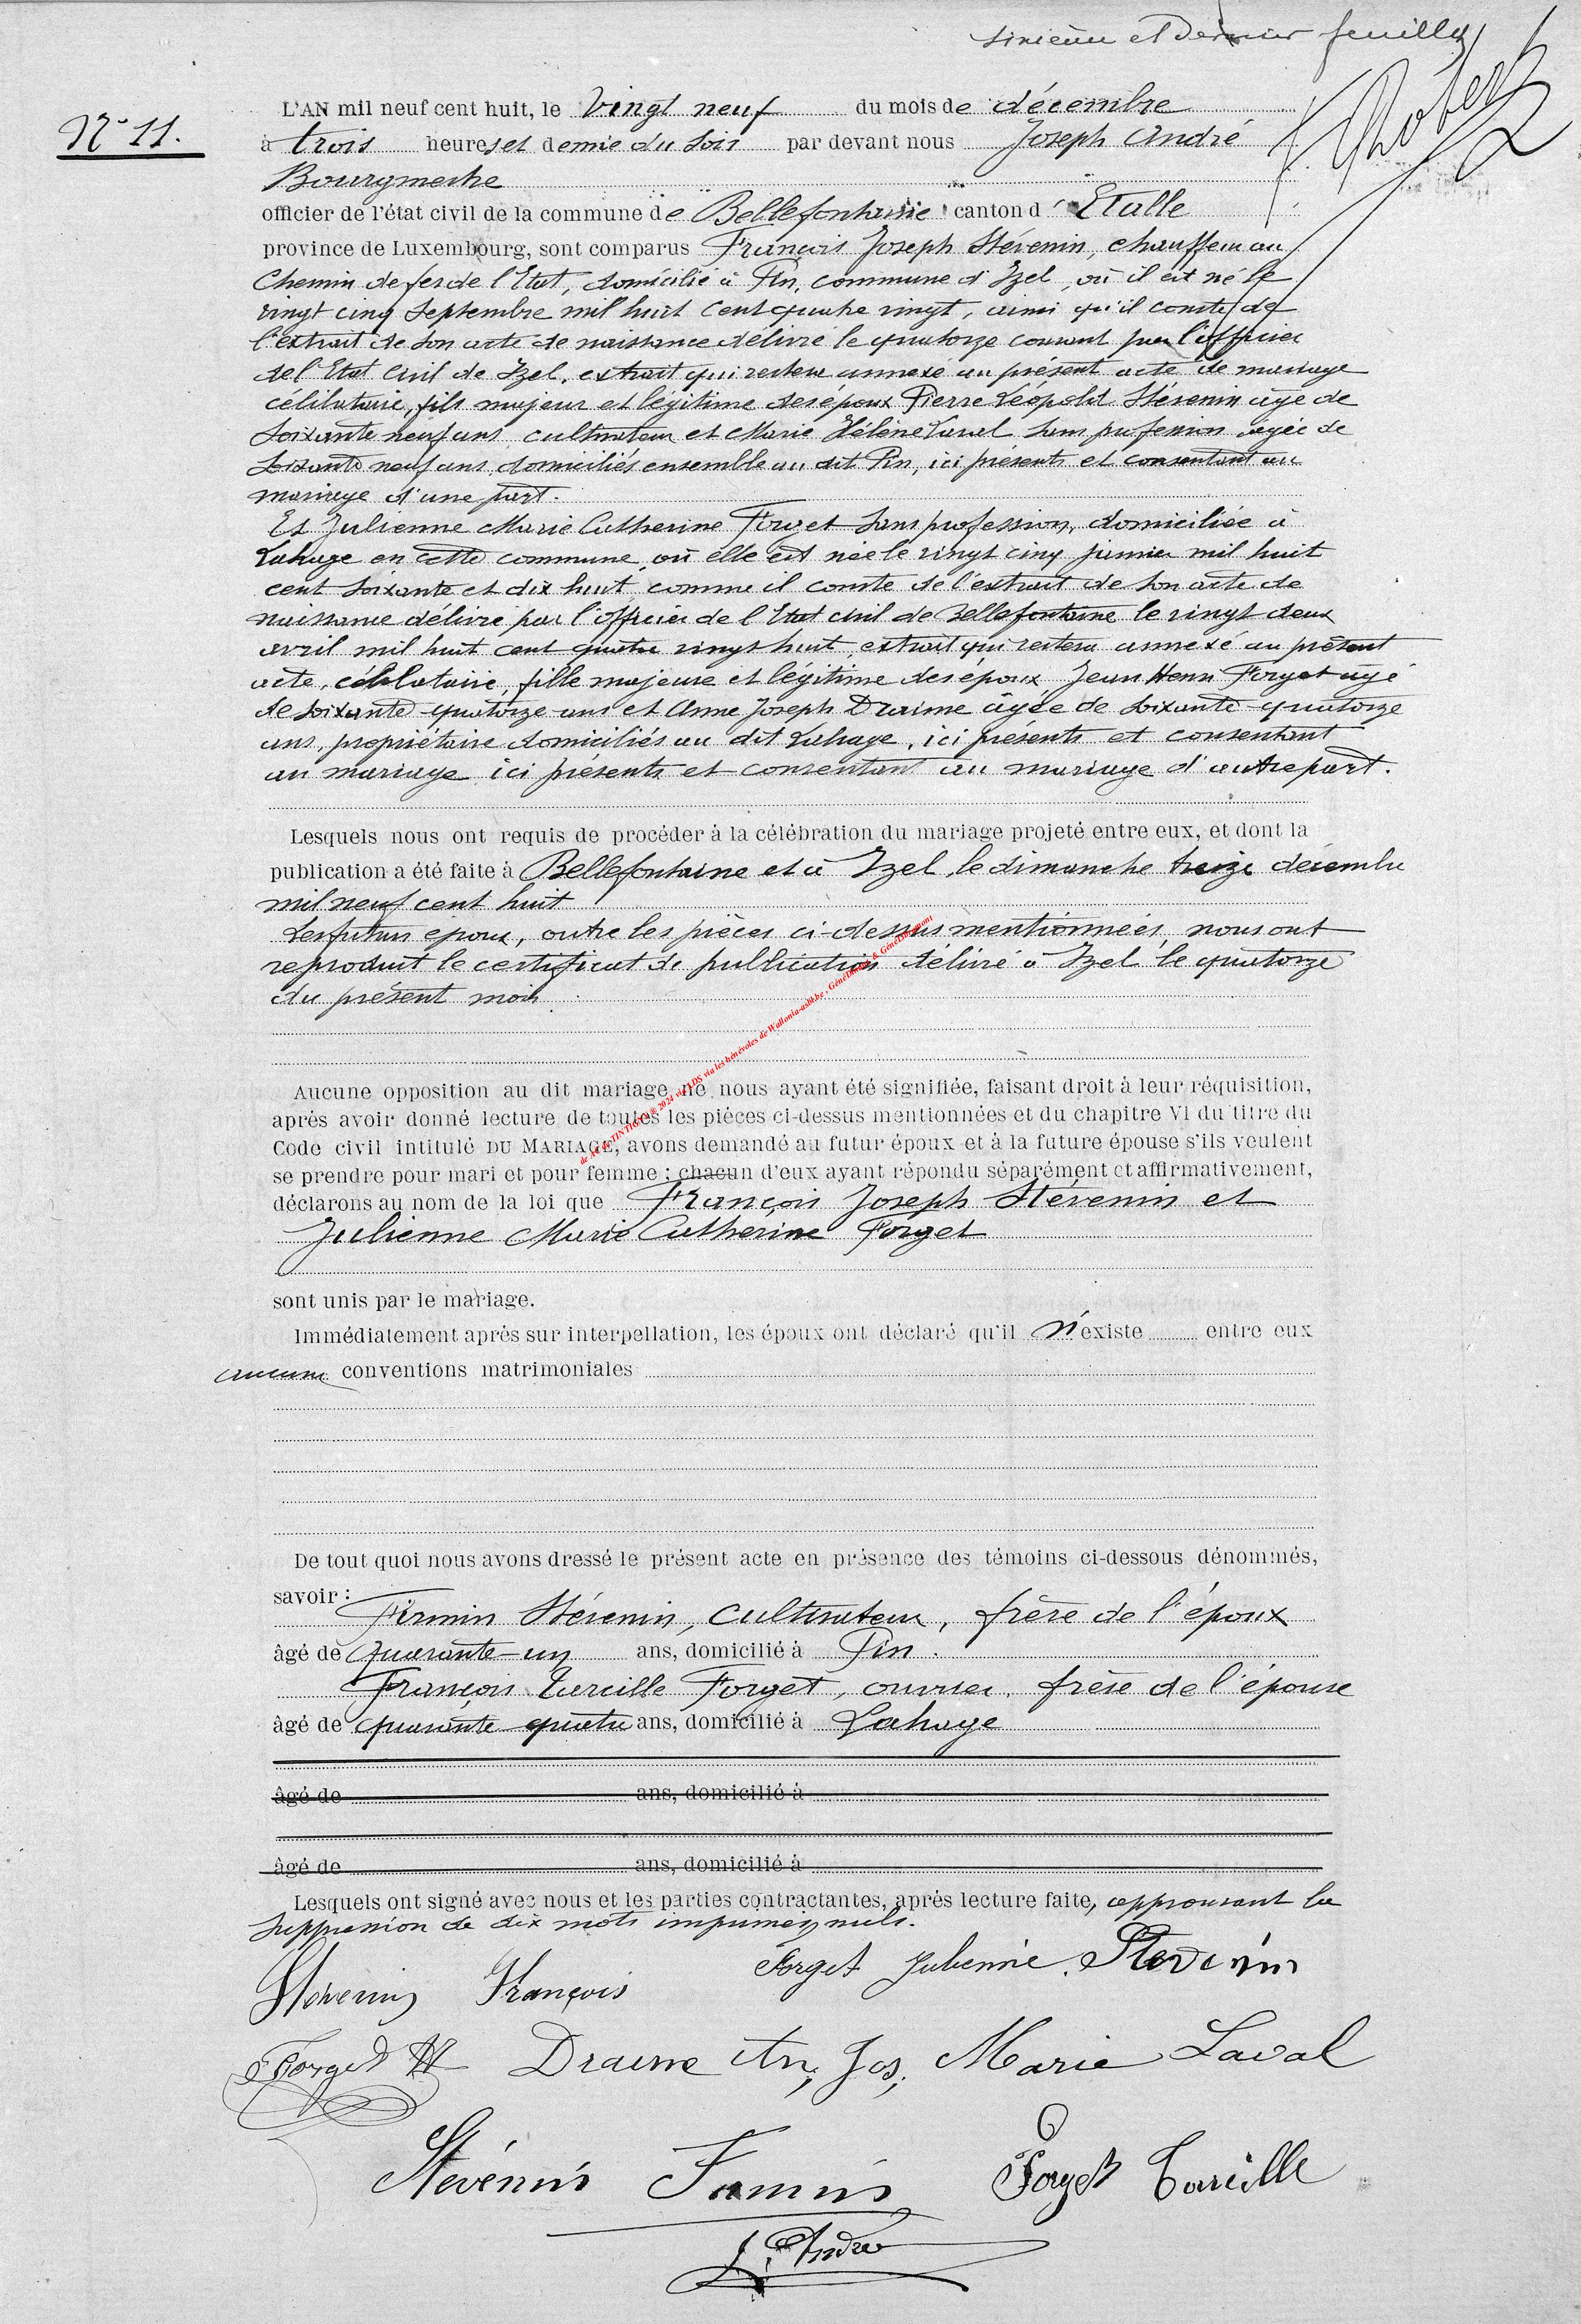 sixième et Dernier feuillet
N° 11.
L'AN mil neuf cent huit, le Vingt neuf du mois de décembre
à trois heures et demie du soir par devant nous Joseph André
Bourgmestre
officier de l'état civil de la commune de Bellefontaine canton d'Etalle
province de Luxembourg, sont comparus François Joseph Stévenin, chauffeur au
Chemin de fer de l'Etat, domicilié à Pin, commune d'Izel, où il est né le
vingt cinq Septembre mil huit cent quatre vingt, ainsi qu'il conste de
l'extrait de son acte de naissance délivré le quatorze courant par l'officier
de l'Etat Civil de Izel, extrait qui restera annexé au présent acte de mariage
célibataire, fils majeur et légitime des époux Pierre Léopold Stévenin âgé de
soixante neuf ans cultivateur et Marie Hélène Laval sans profession âgée de
soixante neuf ans domiciliés ensemble au dit Pin, ici présents et consentant au
mariage d'une part.
Et Julienne Marie Catherine Forget sans profession, domiciliée à
Lahage en cette commune, où elle est née le vingt cinq janvier mil huit
cent soixante et dix huit, comme il conste de l'extrait de son acte de
naissance délivré par l'officier de l'Etat civil de Bellefontaine le vingt deux
avril mil huit cent quatre vingt huit, extrait qui restera annexé au présent
acte, célibataire, fille majeure et légitime des époux Jean Henri Forget âgé
de soixante-quatorze ans et Anne Joseph Draime âgée de soixante-quatorze
ans, propriétaire domiciliés au dit Lahage, ici présents et consentant
au mariage ici présents et consentant au mariage d'autre part.
Lesquels nous ont requis de procéder à la célébration du mariage projeté entre eux, et dont la
publication a été faite à Bellefontaine et à Izel, le dimanche treize décembre
mil neuf cent huit
Les futurs époux, outre les pièces ci-dessus mentionnées, nous ont
reproduit le certificat de publication délivré à Izel le quatorze
du présent mois.
Aucune opposition au dit mariage ne nous ayant été signifiée, faisant droit à leur réquisition,
après avoir donné lecture de toutes les pièces ci-dessus mentionnées et du chapitre VI du titre du
Code civil intitulé DU MARIAGE, avons demandé au futur époux et à la future épouse s'ils veulent
se prendre pour mari et pour femme : chacun d'eux ayant répondu séparément et affirmativement,
déclarons au nom de la loi que François Joseph Stévenin et
Julienne Marie Catherine Forget
sont unis par le mariage.
Immédiatement après sur interpellation, les époux ont déclaré qu'il n'existe entre eux
aucune conventions matrimoniales
De tout quoi nous avons dressé le présent acte en présence des témoins ci-dessous dénommés,
savoir :
Firmin Stévenin, cultivateur, frère de l'époux
âgé de quarante-un ans, domicilié à Pin.
François Turcille Forget, ouvrier, frère de l'épouse
âgé de quarante quatre ans, domicilié à Lahage
âgé de ans, domicilié à
âgé de ans, domicilié à
Lesquels ont signé avec nous et les parties contractantes, après lecture faite, approuvant la
suppression de dix mots imprimés nuls.
Forget Julienne. Stevenin
Stévenin François
Forget JH Draime An, Jos, Marie Laval
Stévenin Firmin Forget
J. André